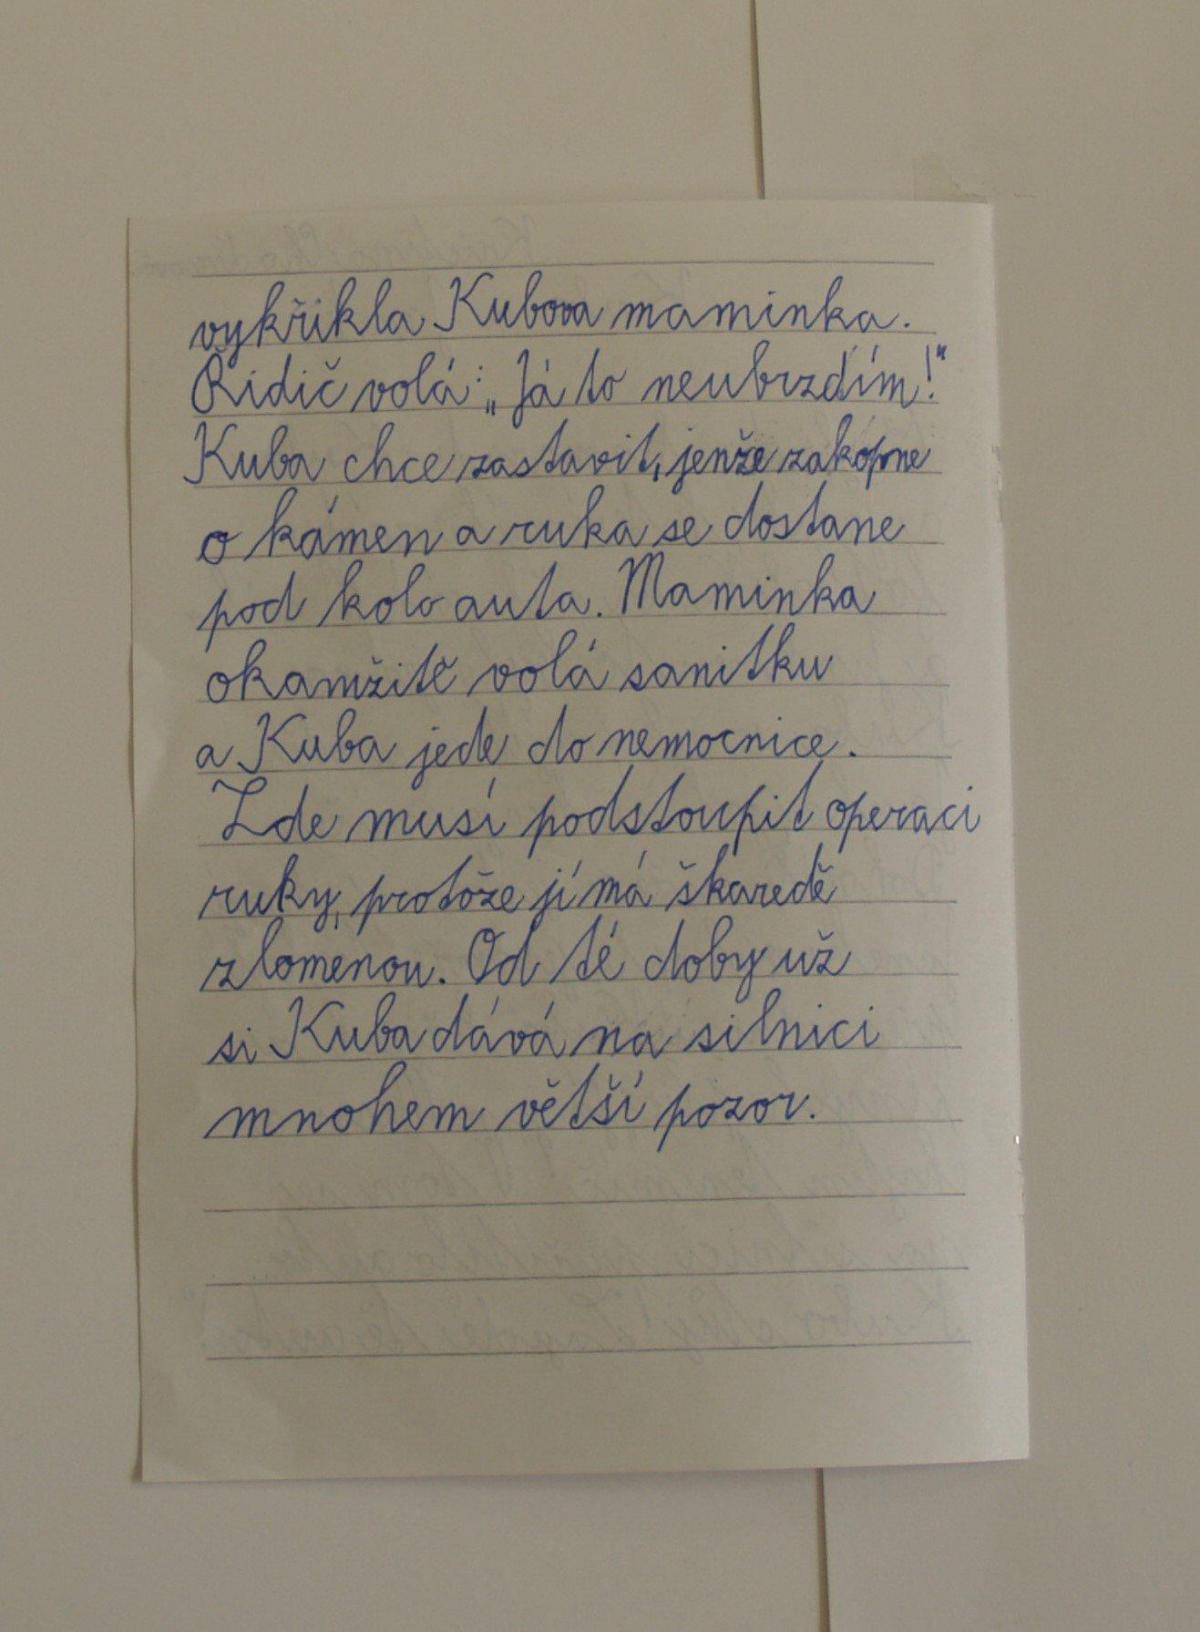 vykřikla Kubova maminka.
Řidič volá: „Já to neubrzdím!“
Kuba chce zastavit, jenže zakopne
o kámen a ruka se dostane
pod kolo auta. Maminka
okamžitě volá sanitku
a Kuba jede do nemocnice.
Zde musí podstoupit operaci
ruky, protože jí má škaredě
zlomenou. Od té doby už
si Kuba dává na silnici
mnohem větší pozor.